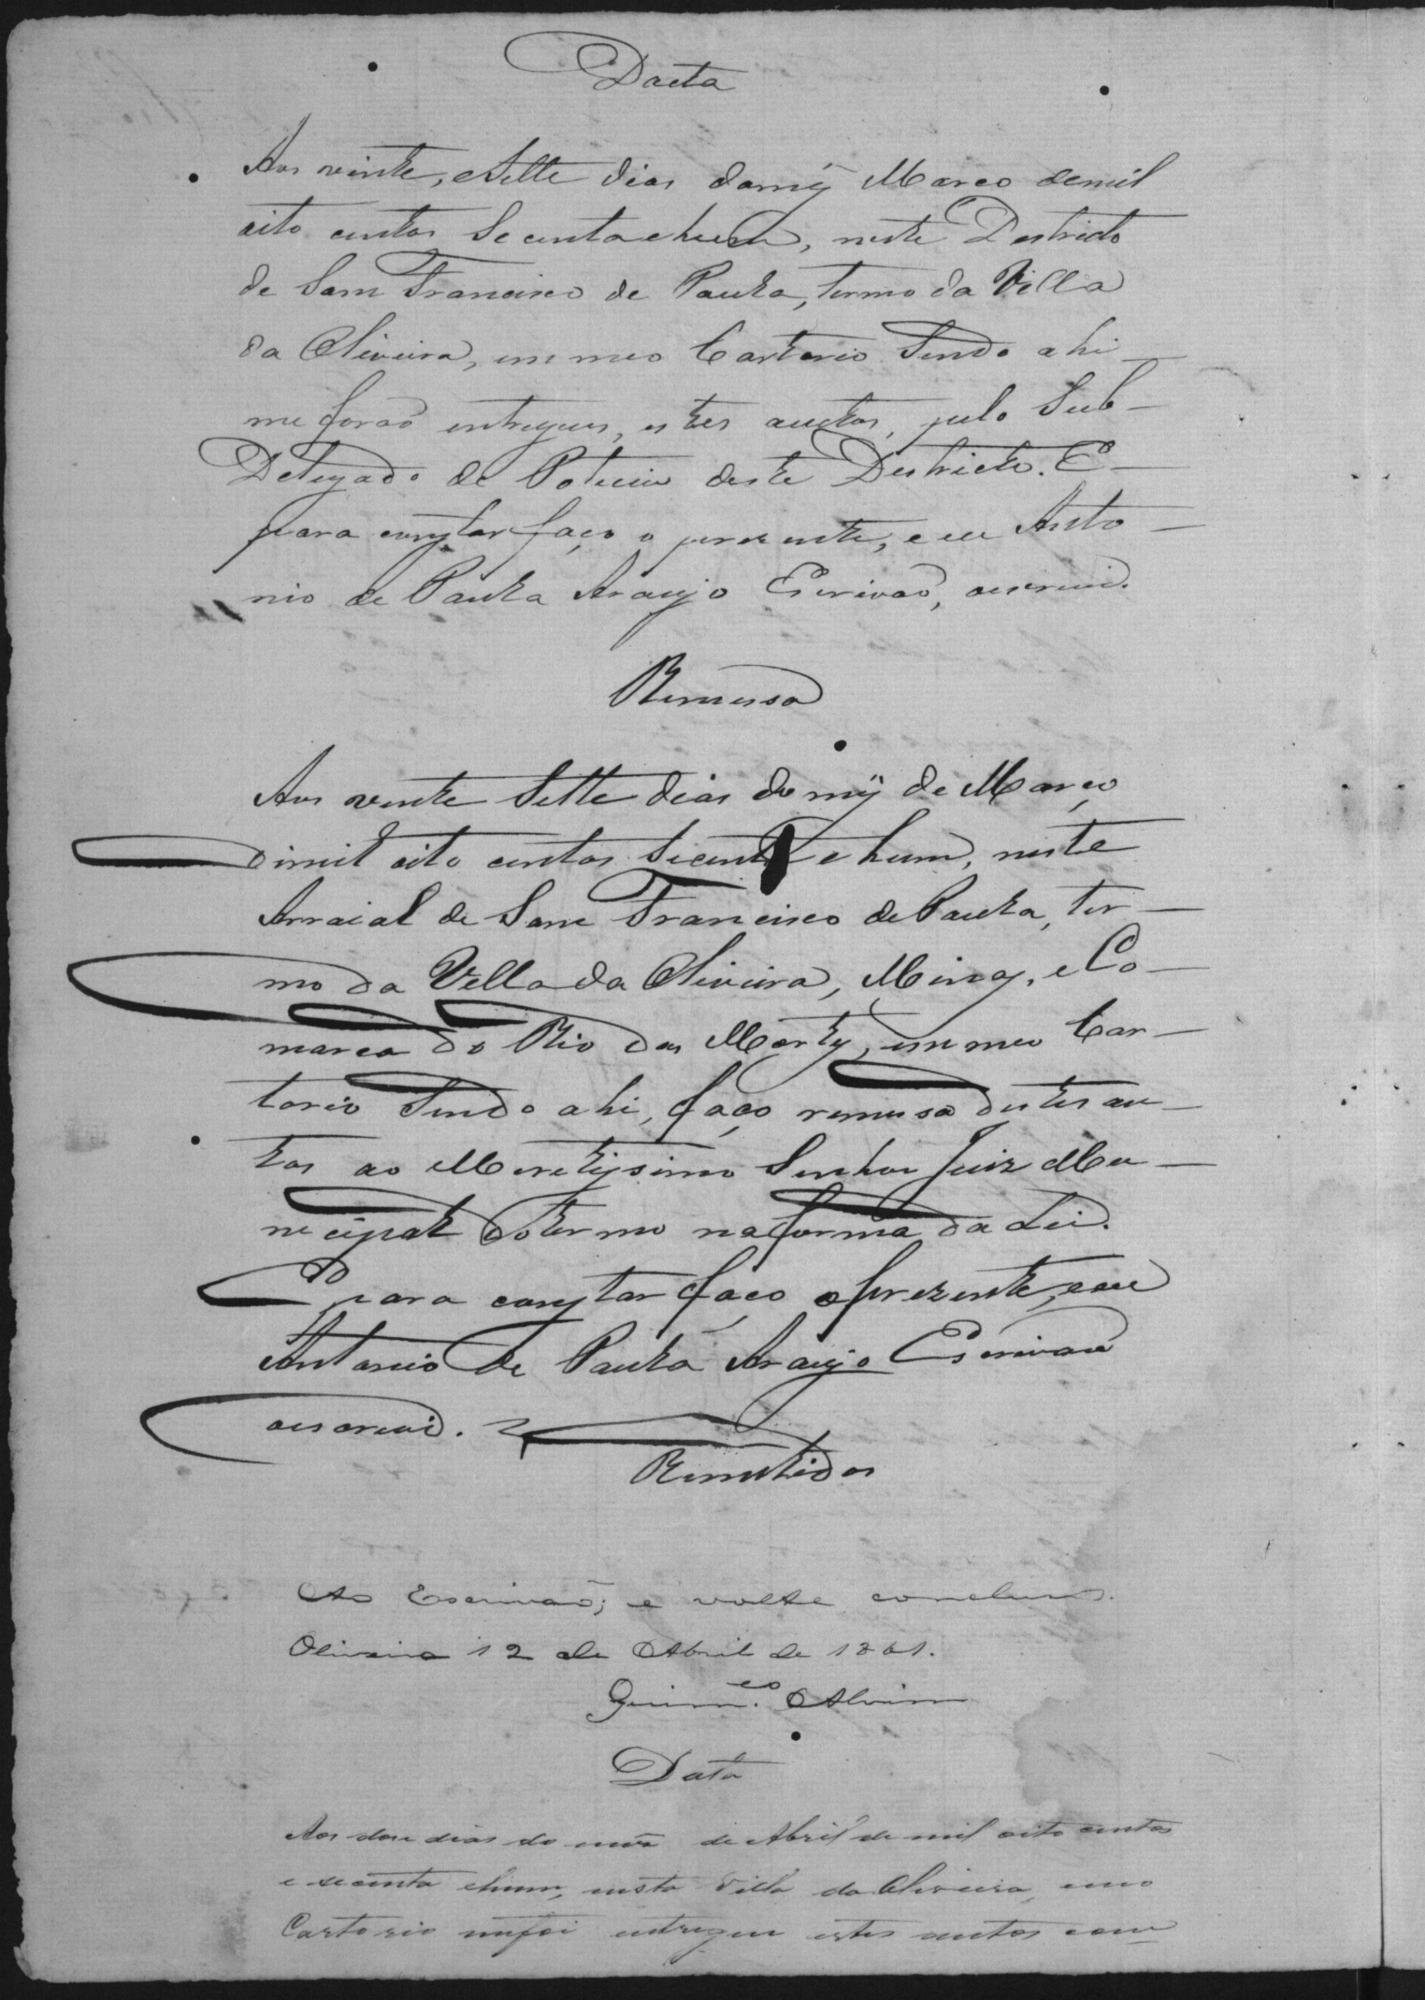 Dacta
Aos vinte, e Sette dias do mêz Marco de mil
oito centos Secenta e hum, neste Destricto
de Sam Francisco de Paula, termo da Villa
da Oliveira, em meo Cartorio Sendo ahi
me forão entregues, estes auctos, pelo Sub-
Delegado de Policia deste Destricto. E
para constar faço o prezente, e eu Anto-
nio de Paula Araujo Escrivão, oescrevi.
Remessa
Aos vinte Sette dias do mêz de Março
de mil oito centos Secenta e hum, neste
Arraial de Sam Francisco de Paula, ter-
mo da Villa da Oliveira, Minas, e Co-
marca do Rio das Mortes, em meo Car-
torio Sendo ahi, faço remessa destes au-
tos ao Meretissimo Senhor Juiz Mu-
necipal do termo na forma da Lei.
E para constar faço o prezente, e eu
Antonio de Paula Araujo Escrivão
oescrevi.
Remetidos
Ao Escrivão; e volte concluso.
Oliveira 12 de Abril de 1861.
Guim.es Alvim
Data
Aos dose dias do mez de Abril de mil oito centos
e secenta e hum, nesta Villa da Oliveira, em o
Cartorio me foi entregue estes autos com